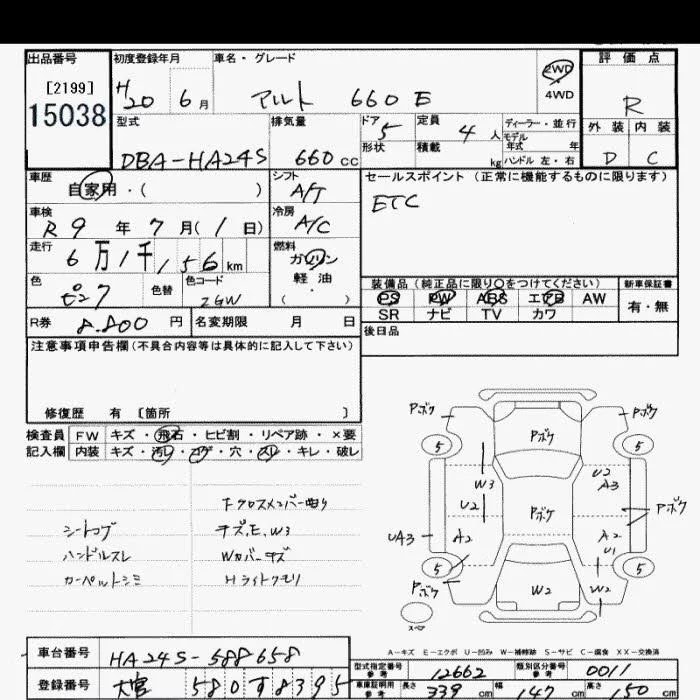 出品番号 初度登録年月 車名・グレード 評価点
[2199] H20 6月 アルト 660 E 2WD 4WD R
15038 外装 内装
型式 排気量 ドア 定員 ディーラー・並行
5 4人 モデル年式 年
DBA-HA24S 660cc 形状 積載 kg ハンドル 左・右 D C
車歴 シフト セールスポイント(正常に機能するものに限ります)
自家用・( ) A/T ETC
車検 冷房
R9年7月(1日) A/C
走行 燃料
6万1千156km ガソリン
色 色替 色コード 軽油
ピンク ZGW ( ・ )
装備品(純正品に限り○をつけてください) 新車保証書
PS PW ABS エアB AW 有・無
SR ナビ TV カワ
R券 8.800円 名変期限 月 日 後日品
注意事項申告欄(不具合内容等は具体的に記入して下さい)
修復歴 有 〔箇所 〕
検査員 FW キズ・飛石・ヒビ割・リペア跡・×要
記入欄 内装 キズ・汚レ・コゲ・穴・スレ・キレ・破レ
Fクロスメンバー曲り
シートコゲ キズ,E,W3
ハンドルスレ Wカバーキズ
カーペットシミ Hライトクモリ
Pボケ Pボケ
5 Pボケ 5
W3 U2 A3
U2 Pボケ Pボケ
UA3 A2 A2
U1
5 5
Pボケ W2 W2 W2
スペア
A-キズ E-エクボ U-凹み W-補修跡 S-サビ C-腐食 XX-交換済
車台番号 HA24S-588658
型式指定番号 参考 12662 類別区分番号 参考 0011
登録番号 大宮 580す8395
車庫証明用 参考 長さ 339cm 幅 147cm 高さ 150cm